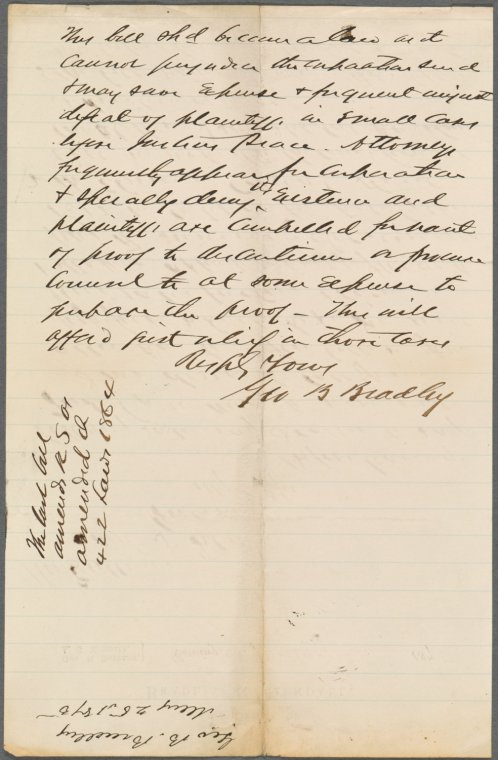 This bill shd become a law as it
cannot prejudice the corporation
& may save Expense & frequent unjust
defeat of plaintiffs in small cases
before Justices Peace. Attorneys
frequently appear for corporation
& specially deny its Existence and
plaintiffs are compelled for want
of proof to discontinue or procure
Counsel &c at some Expense to
prepare the proof - This will
afford just relief in those cases
Resply Yours
Geo B Bradley
The last bill
amends R S as
amended Ch
422 Laws 1864
Geo B. Bradley
May 25 1875